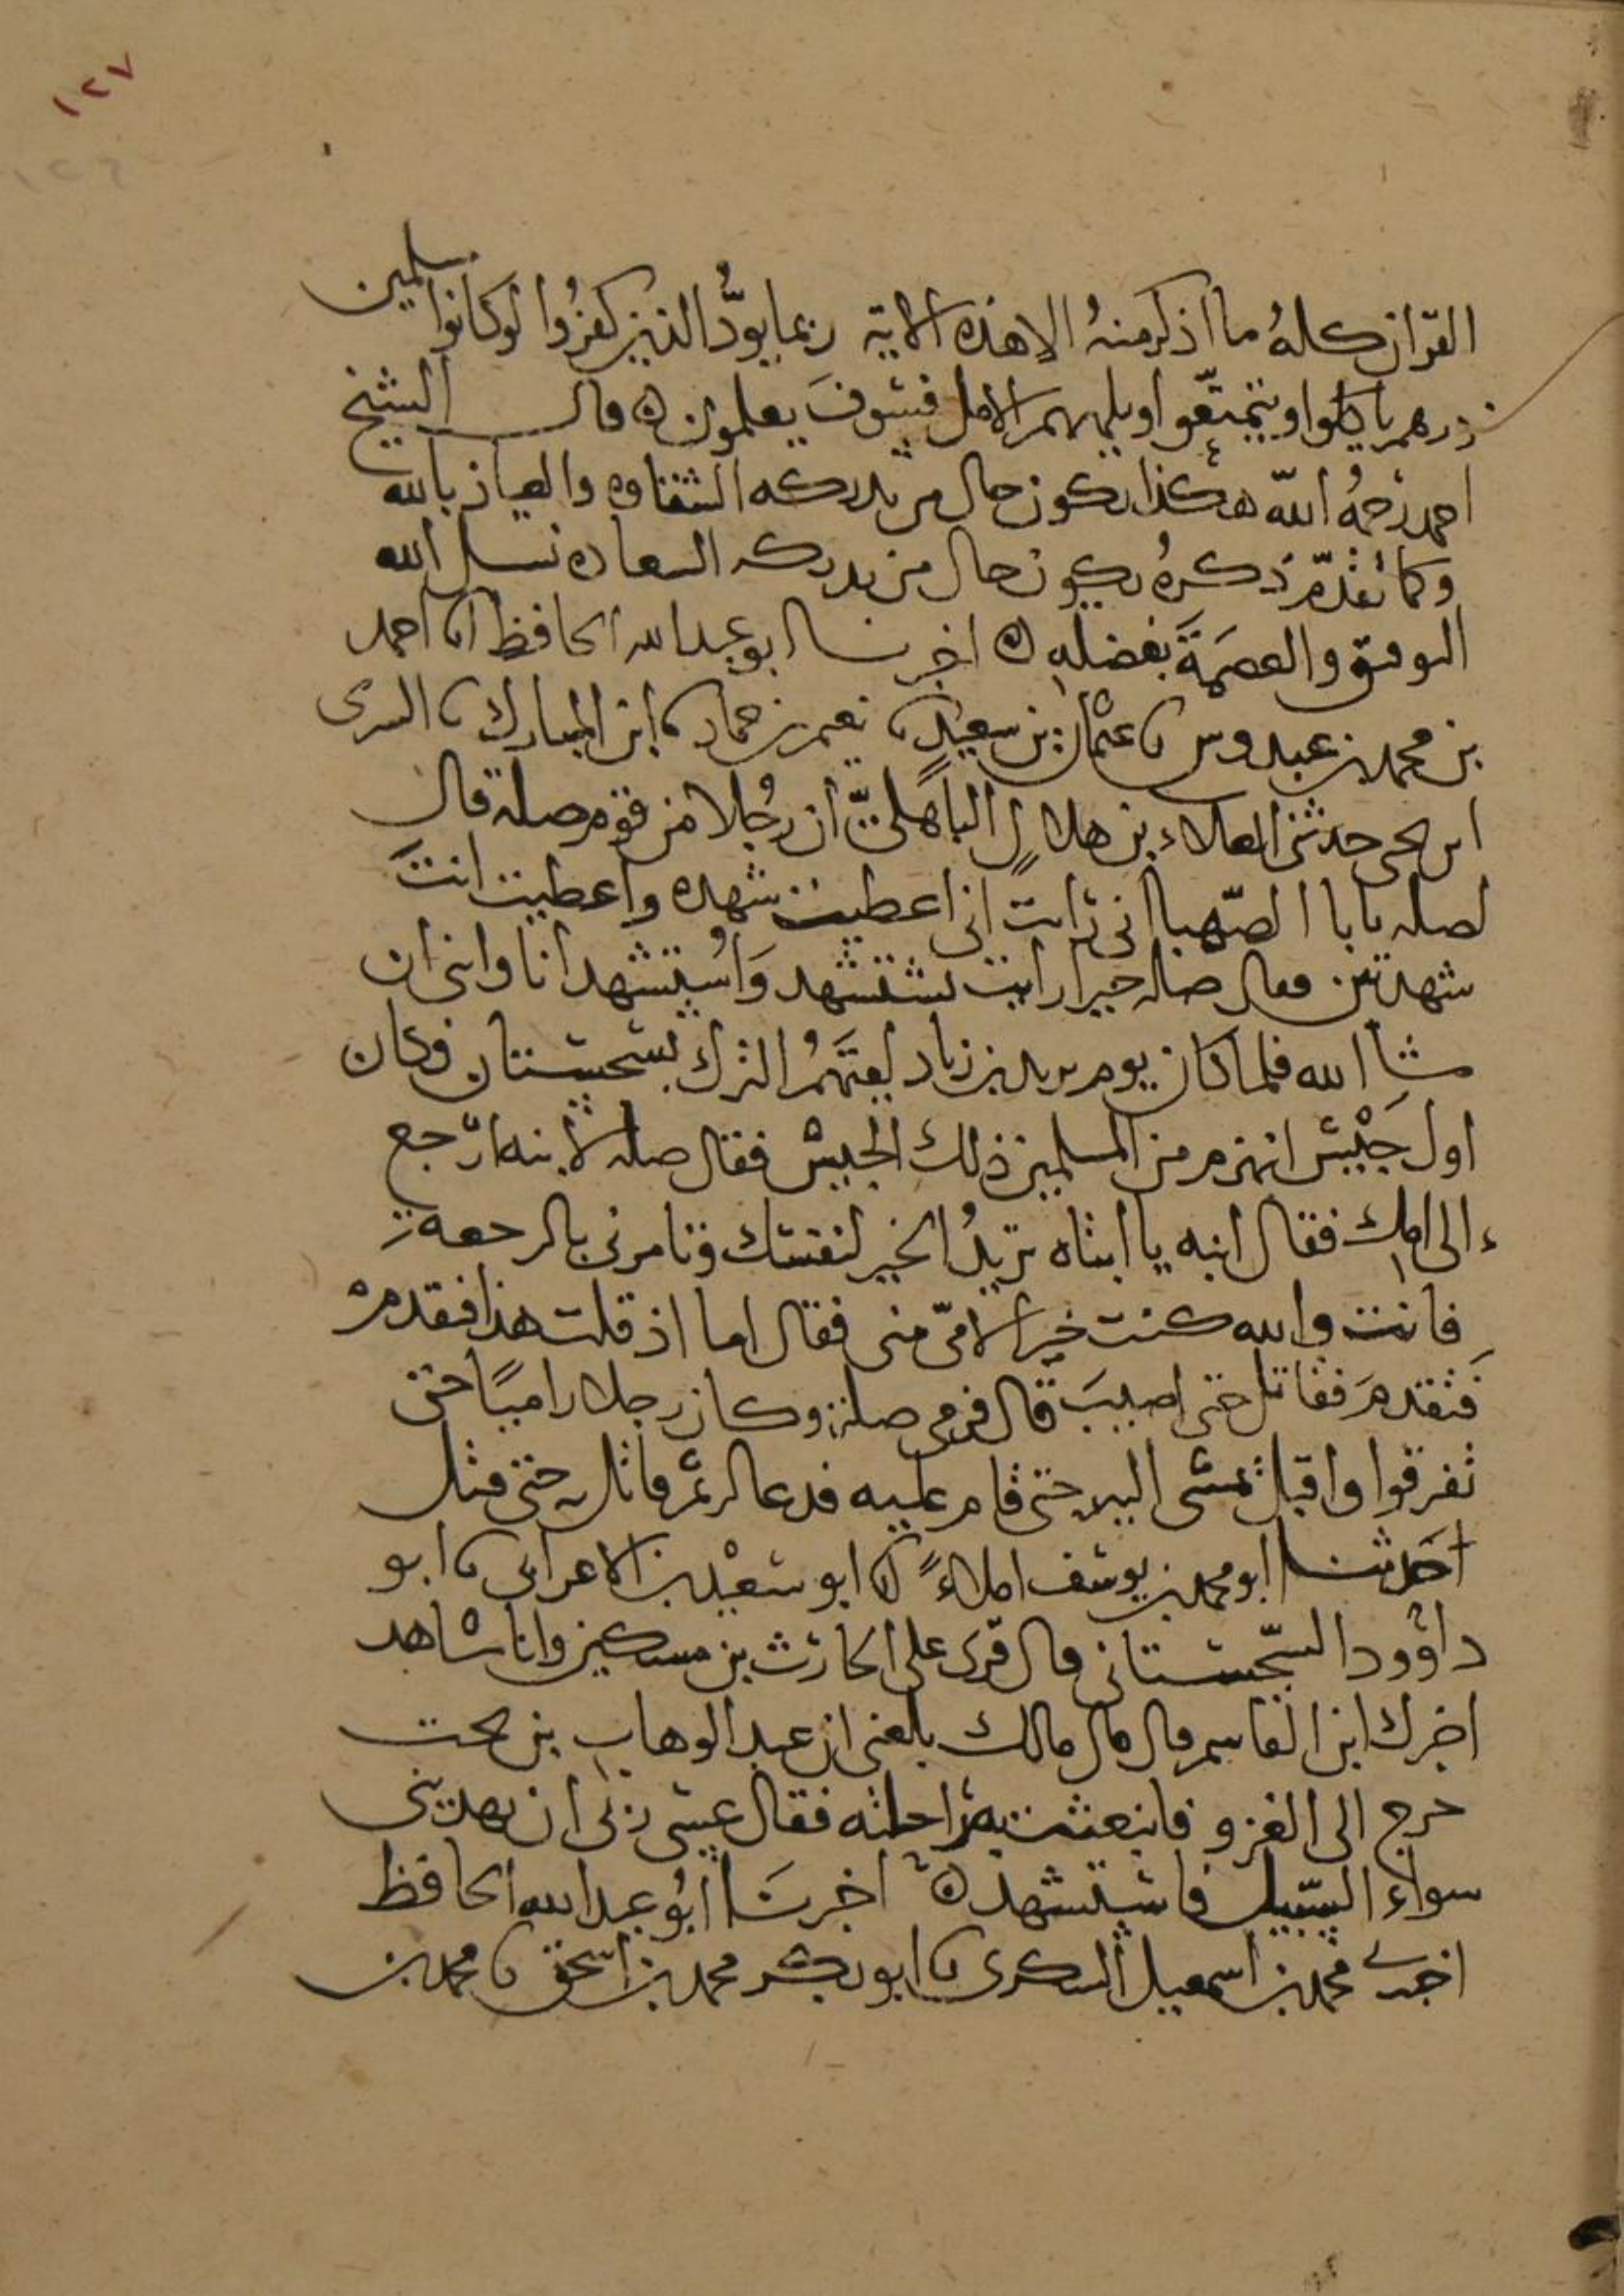 ١٢٧
القرآن كلهُ ما اذكر منهُ الا هذه الاية ربما يودُّ الذين كفرُوا لو كانوا مسلمين
ذرهم ياكلوا ويتمتّعوا ويلههم الامل فسوفَ يعلمون ه قال الشيخ
احمد رحمهُ اللّه هكذا يكون حال من يدركه الشقاوه والعياذ بالله
وكما تقدّم ذكرهُ يكون حال من يدركه السعاده نسل الله
التوفيق والعصمَةَ بفضله ه اخبرنا ابو عبدالله الحافظ انا احمد
بن محمد بن عبدوس نا عثمان بن سعيدٍ نا نعيم بن حماد نا ابن المبارك نا السرى
ابن يحيى حدثنى العلاء بن هلالٍ الباهلىّ ان رجُلا من قوم صلة قال
لصله يابا الصّهبا انى رايت انى اعطيت شهده واعطيت انتَ
شهدتين فقال صله خيرا رايت تستشهد وَاُستشهد انا وابنى ان
شا الله فلما كان يوم يزيد بن زياد لقيَهُمُ الترك بسجستان فكان
اول جَيْش انهزم من المسلمين ذلك الجيش فقال صله لابنه ارجع
الى امك فقال ابنه يا ابتاه تريدُ الخير لنفسك وتامرنى بالرجعه
فانت والله كنت خير الامّى منى فقال اما اذ قلت هذا فتقدمْ
فتقدمَ فقاتل حتى اصيبَ قال فرمى صلة وكان رجلا راميًا حتى
تفرقوا واقبل تمشى اليه حتى قام عليه فدعا له ثم قاتل حتى قتل
حدثنا ابو محمد بن يوسف املاءً انا ابو سعيْد بن الاعرابى نا ابو
داوود السّجستانى قال قرى على الحارث بن مسكين وانا شاهد
اخبرك ابن القاسم قال قال مالك بلغنى ان عبد الوهاب بن بخت
خرج الى الغزو فانبعثت به راحلته فقال عسى ربى ان يهدينى
سواء السّبيل فاستشهد ه اخبرنَا ابُو عبدالله الحافظ
اخبرنى محمد بن اسمعيل السكرى نا ابو بكر محمد بن اسحق نا محمد بن